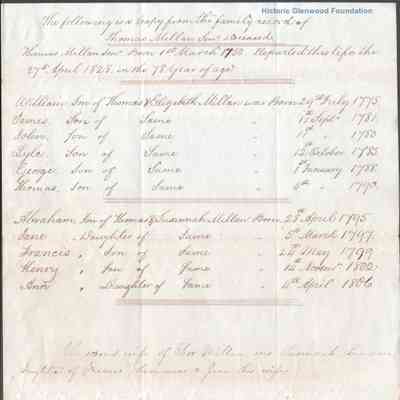 Historic Glenwood Foundation
The following is a Copy from the family record of
Thomas Millan Senr Deceased
Thomas Millan Senr Born 1st March 1750 Departed this life the
27th April 1828 in the 78 year of age
William Son of Thomas & Elizabeth Millan was Born 29th July 1775
James Son of Same " 1st Septr 1781
John Son of Same " 1st " 1783
Lyle Son of Same " 12th October 1785
George Son of Same " 1st January 1788
Thomas Son of Same " 4th " 1793
Abraham Son of Thomas & Susannah Millan Born 28th April 1795
Jane " Daughter of Same - 5th March 1797
Francis " Son of Same - 24th May 1799
Henry " Son of Same - 14th Novemr 1802
Ann " Daughter of Same - 4th April 1806
second wife of Thos Millan was Susannah
of & Jane his wife